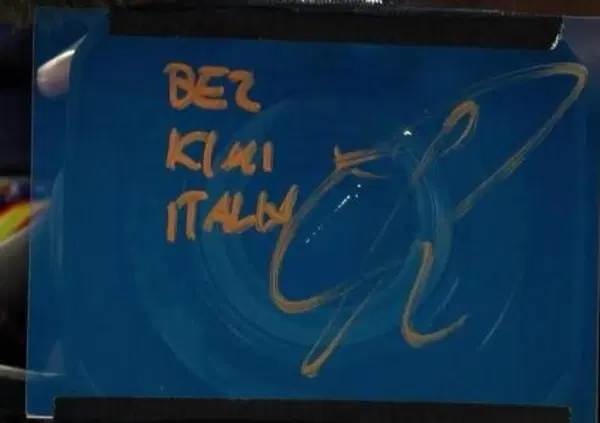 BEZ
KIMI
ITALIA